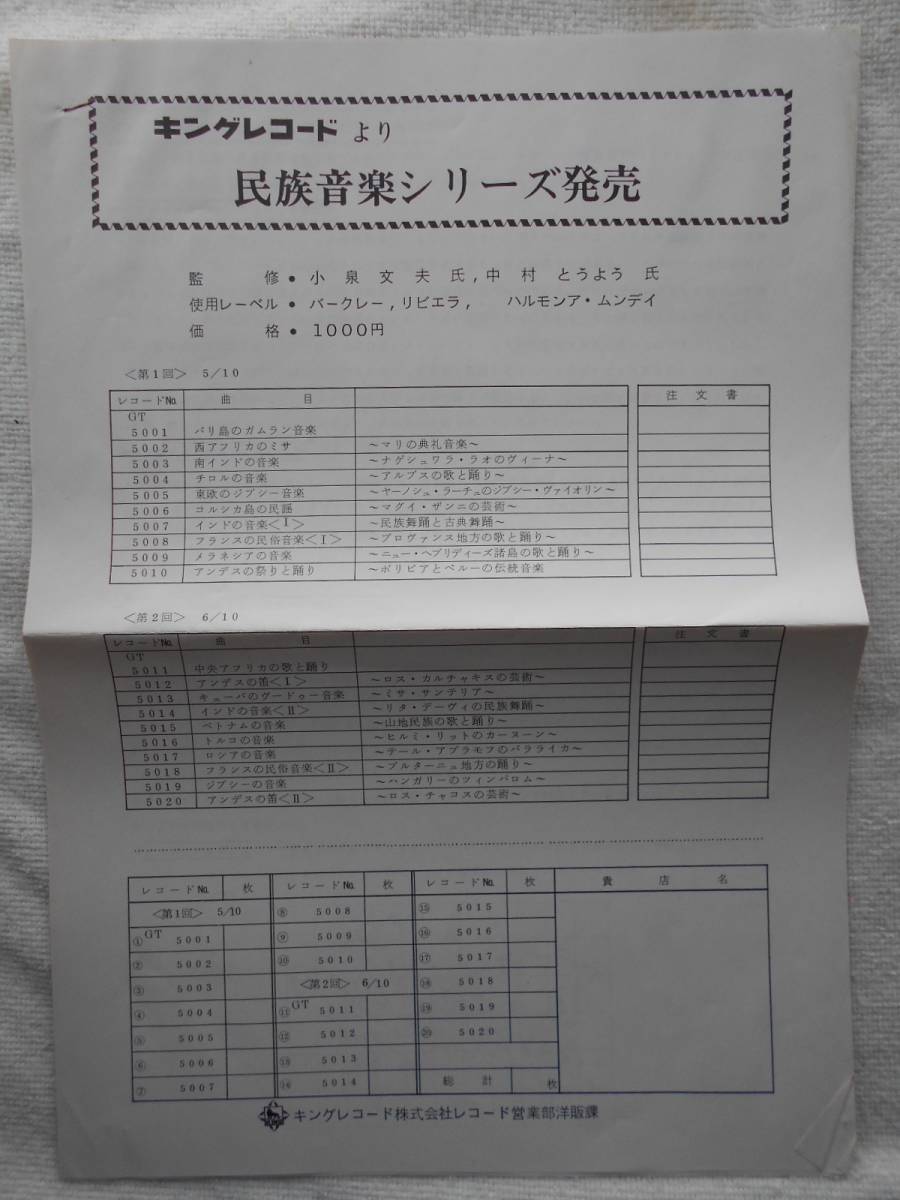 キングレコード より
民族音楽シリーズ発売
監 修 ● 小 泉 文 夫 氏, 中 村 とうよう 氏
使用レーベル ● バークレー, リビエラ, ハルモンア・ムンデイ
価 格 ● 1000円
<第1回> 5/10
レコードNo. 曲 目 注 文 書
GT
5001 バリ島のガムラン音楽
5002 西アフリカのミサ ~マリの典礼音楽~
5003 南インドの音楽 ~ナゲシュワラ・ラオのヴィーナ~
5004 チロルの音楽 ~アルプスの歌と踊り~
5005 東欧のジプシー音楽 ~ヤーノシュ・ラーチュのジプシー・ヴァイオリン~
5006 コルシカ島の民謡 ~マグイ・ザンニの芸術~
5007 インドの音楽<Ⅰ> ~民族舞踊と古典舞踊~
5008 フランスの民俗音楽<Ⅰ> ~プロヴァンス地方の歌と踊り~
5009 メラネシアの音楽 ~ニュー・ヘブリディーズ諸島の歌と踊り~
5010 アンデスの祭りと踊り ~ボリビアとペルーの伝統音楽
<第2回> 6/10
レコードNo. 曲 目 注 文 書
GT
5011 中央アフリカの歌と踊り
5012 アンデスの笛<Ⅰ> ~ロス・カルチャキスの芸術~
5013 キューバのヴードゥー音楽 ~ミサ・サンテリア~
5014 インドの音楽<Ⅱ> ~リタ・デーヴィの民族舞踊~
5015 ベトナムの音楽 ~山地民族の歌と踊り~
5016 トルコの音楽 ~ヒルミ・リットのカーヌーン~
5017 ロシアの音楽 ~テール・アブラモフのバラライカ~
5018 フランスの民俗音楽<Ⅱ> ~ブルターニュ地方の踊り~
5019 ジプシーの音楽 ~ハンガリーのツィンバロム~
5020 アンデスの笛<Ⅱ> ~ロス・チャコスの芸術~
レコードNo. 枚 レコードNo. 枚 レコードNo. 枚 貴 店 名
<第1回> 5/10 ⑧ 5008 ⑮ 5015
① GT 5001 ⑨ 5009 ⑯ 5016
② 5002 ⑩ 5010 ⑰ 5017
③ 5003 <第2回> 6/10 ⑱ 5018
④ 5004 ⑪ GT 5011 ⑲ 5019
⑤ 5005 ⑫ 5012 ⑳ 5020
⑥ 5006 ⑬ 5013
⑦ 5007 ⑭ 5014 総 計 枚
キングレコード株式会社レコード営業部洋販課